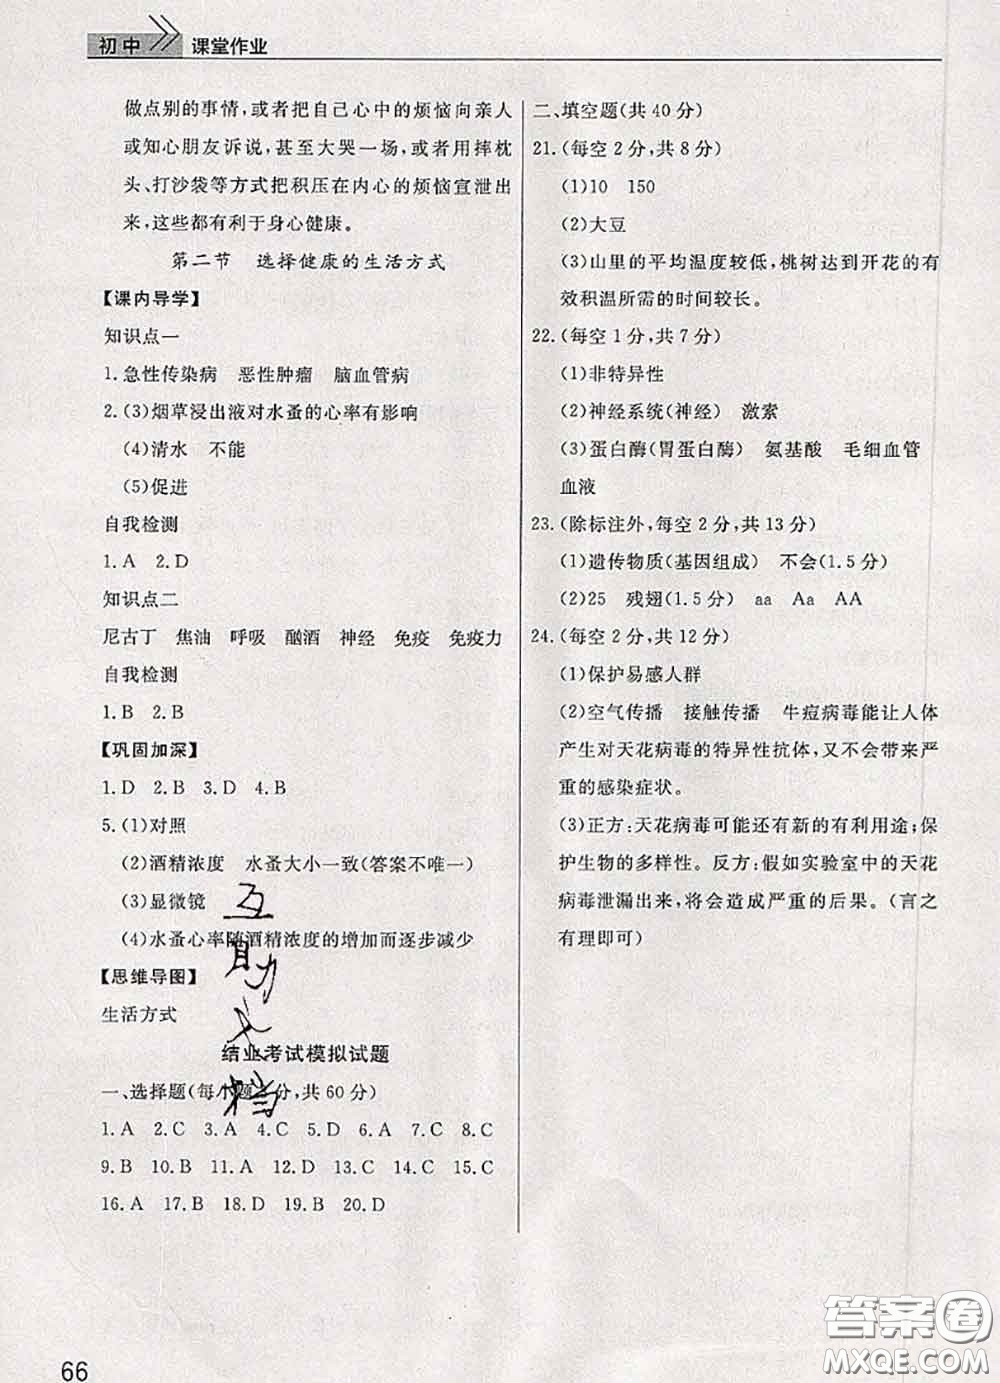 初中 课堂作业
做点别的事情,或者把自己心中的烦恼向亲人
或知心朋友诉说,甚至大哭一场,或者用摔枕
头、打沙袋等方式把积压在内心的烦恼宣泄出
来,这些都有利于身心健康。
第二节 选择健康的生活方式
【课内导学】
知识点一
1.急性传染病 恶性肿瘤 脑血管病
2.(3)烟草浸出液对水蚤的心率有影响
(4)清水 不能
(5)促进
自我检测
1.A 2.D
知识点二
尼古丁 焦油 呼吸 酗酒 神经 免疫 免疫力
自我检测
1.B 2.B
【巩固加深】
1.D 2.B 3.D 4.B
5.(1)对照
(2)酒精浓度 水蚤大小一致(答案不唯一)
(3)显微镜
(4)水蚤心率随酒精浓度的增加而逐步减少
【思维导图】
生活方式
结业考试模拟试题
一、选择题(每小题3分,共60分)
1.A 2.C 3.A 4.C 5.D 6.A 7.C 8.C
9.B 10.B 11.A 12.D 13.D 14.C 15.C
16.A 17.B 18.D 19.B 20.D
二、填空题(共40分)
21.(每空2分,共8分)
(1)10 150
(2)大豆
(3)山里的平均温度较低,桃树达到开花的有
效积温所需的时间较长。
22.(每空1分,共7分)
(1)非特异性
(2)神经系统(神经) 激素
(3)蛋白酶(胃蛋白酶) 氨基酸 毛细血管
血液
23.(除标注外,每空2分,共13分)
(1)遗传物质(基因组成) 不会(1.5分)
(2)25 残翅(1.5分) aa Aa AA
24.(每空2分,共12分)
(1)保护易感人群
(2)空气传播 接触传播 牛痘病毒能让人体
产生对天花病毒的特异性抗体,又不会带来严
重的感染症状。
(3)正方:天花病毒可能还有新的有利用途;保
护生物的多样性。反方:假如实验室中的天花
病毒泄漏出来,将会造成严重的后果。(言之
有理即可)
互助文档
66
答案圈
MXQE.COM